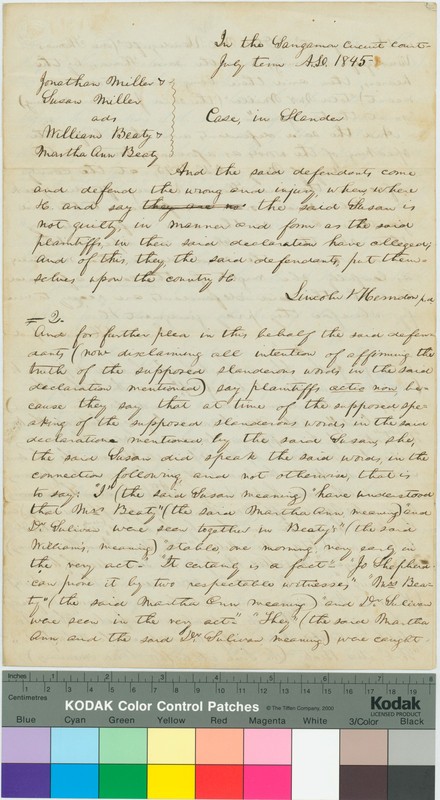 In the Sangamon circuit court
July term A.D. 1845
Jonathan Miller &
Susan Miller
ads
William Beaty &
Martha Ann Beaty
Case, in Slander
And the said defendants come
and defend the wrong and injury, when, where
&c and say they are no the said Susan is
not guilty in manner and form as the said
plaintiffs, in their said declaration have alledged;
and of this, they, the said defendants, put them-
selves upon the country &c
Lincoln & Herndon p.d.
2.
And for further plea in this behalf the said defen-
dants (now disclaiming all intention of affirming the
truth of the supposed slanderous words in the said
declaration mentioned) say plaintiffs actio non, be-
cause they say that at time of the supposed spe-
aking of the supposed slanderous words in the said
declaration mentioned by the said Susan, she,
the said Susan did speak the said words, in the
connection following, and not otherwise, that is
to say: "I" (the said Susan meaning) "have understood
that Mrs Beaty" (the said Martha Ann meaning) "and
Dr Sulivan were seen together in Beaty's" (the said
Williams, meaning) "stable, one morning, very early in
the very act" "It certainly is a fact" "Jo Shepherd
can prove it by two respectable witnesses" "Mrs Bea-
ty" (the said Martha Ann meaning) "and Dr Sulivan
were seen in the very act" "They" (the said Martha
Ann and the said Dr Sulivan meaning) "were caught
Inches 1 2 3 4 5 6 7 8
Centimetres 1 2 3 4 5 6 7 8 9 10 11 12 13 14 15 16 17 18 19
KODAK Color Control Patches
© The Tiffen Company, 2000
Kodak
LICENSED PRODUCT
Blue Cyan Green Yellow Red Magenta White 3/Color Black